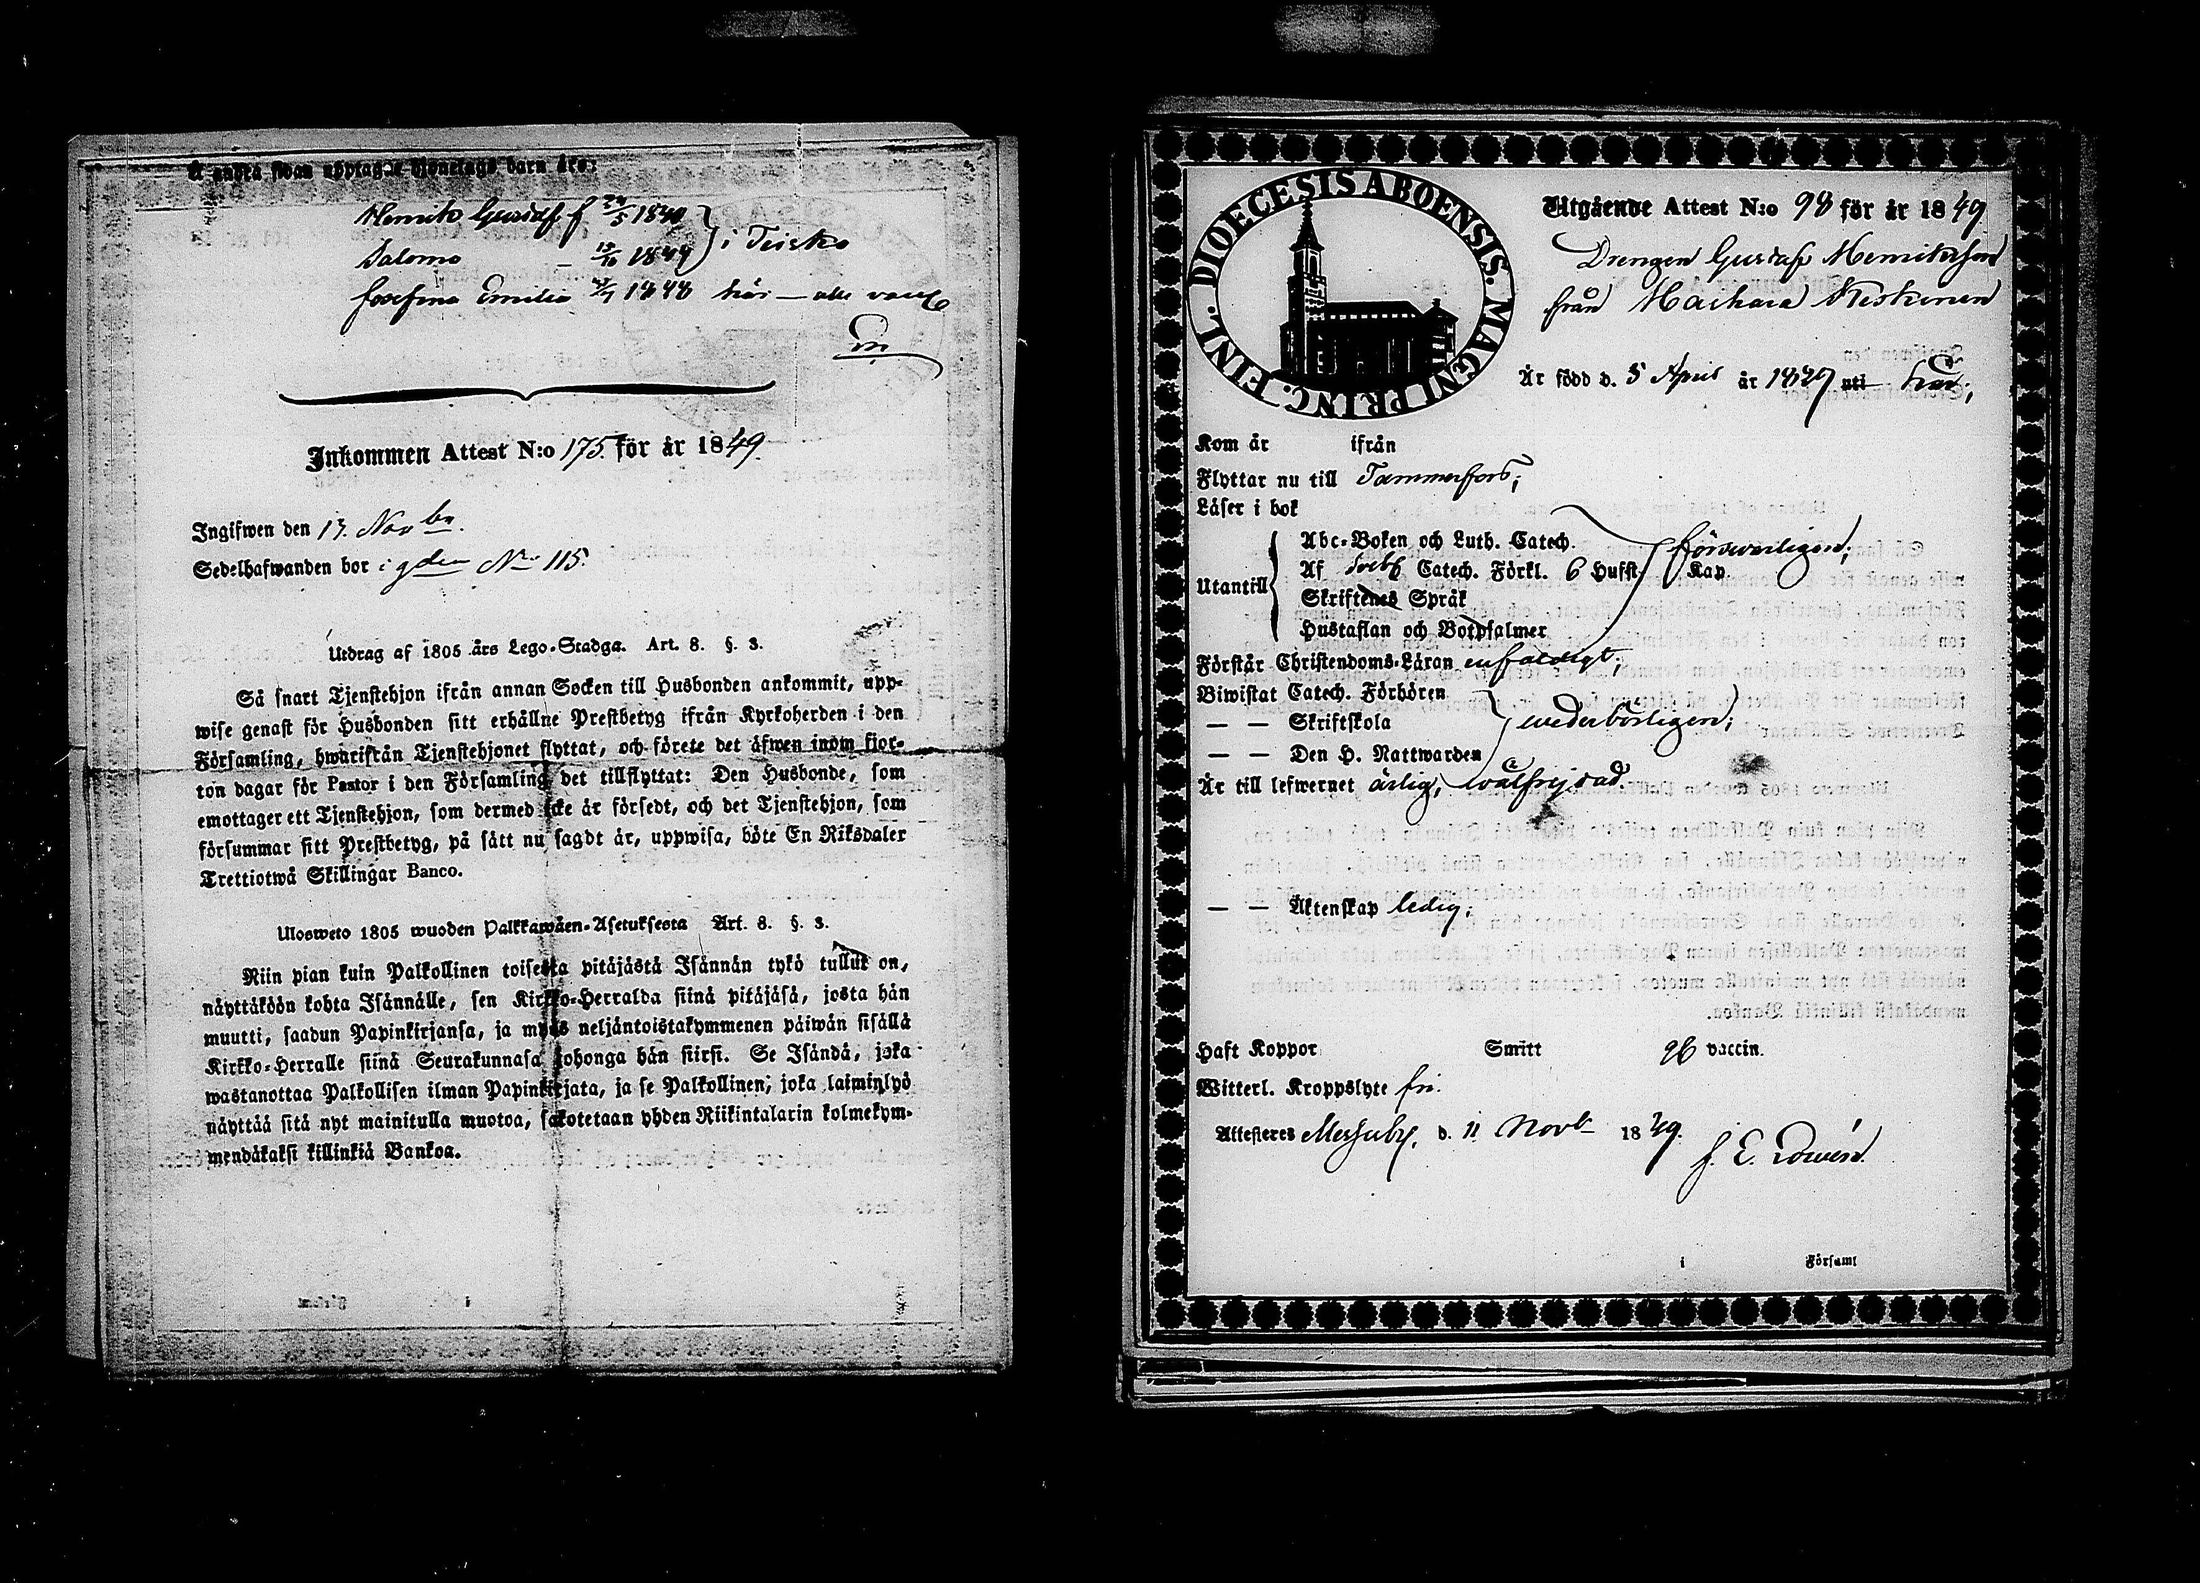 Å andra sidan upptagne Hjonelags barn äro:
Henrik Gustaf f 24/5 1840
Salomo – 13/10 1844 } i Teisko
Josefina Emilia 4/7 1848 här – alla vacc
Inkommen Attest N:o 175. för år 1849.
Ingifwen den 13. Novbr.
Sedelhafwanden bor i gden No 115.
Utdrag af 1805 års Lego-Stadga. Art. 8. §. 3.
Så snart Tjenstehjon ifrån annan Socken till Husbonden ankommit, upp-
wise genast för Husbonden sitt erhållne Prestbetyg ifrån Kyrkoherden i den
Församling, hwarifrån Tjenstehjonet flyttat, och förete det äfwen inom fjor-
ton dagar för Pastor i den Församling det tillflyttat: Den Husbonde, som
emottager ett Tjenstehjon, som dermed icke är försedt, och det Tjenstehjon, som
försummar sitt Prestbetyg, på sätt nu sagdt är, uppwisa, böte En Riksdaler
Trettiotwå Skillingar Banco.
Ulosweto 1805 wuoden Palkkawäen-Asetuksesta Art. 8. §. 3.
Niin pian kuin Palkollinen toisesta pitäjästä Isännän tykö tullut on,
näyttäköön kohta Isännälle, sen Kirkko-Herralda siinä pitäjäsä, josta hän
muutti, saadun Papinkirjansa, ja myös neljäntoistakymmenen päiwän sisällä
Kirkko-Herralle siinä Seurakunnasa johonga hän siirsi. Se Isändä, joka
wastanottaa Palkollisen ilman Papinkirjata, ja se Palkollinen, joka laiminlyö
näyttää sitä nyt mainitulla muotoa, sakotetaan yhden Riikintalarin kolmekym-
mendäkaksi killinkiä Bankoa.
DIOECESIS ABOENSIS. MAGNI PRINC. FINL.
Utgående Attest N:o 98 för år 1849
Drengen Gustaf Henriksson
från Haihara Keskinen
Är född d. 5 April år 1827 uti här;
Kom år ifrån
Flyttar nu till Tammerfors;
Läser i bok
Utantill
Abc-Boken och Luth. Catech. försvarligen;
Af Sveb Catech. Förkl. 6 Hufst. Kap
Skriftenes Språk
Hustaflan och Botpsalmer
Förstår Christendoms-Läran enfaldigt;
Biwistat Catech. Förhören
— — Skriftskola wederbörligen;
— — Den H. Nattwarden
Är till lefwernet ärlig, wälfrejdad.
— — Äktenskap ledig;
Haft Koppor Smitt vaccin.
Witterl. Kroppslyte fri.
Attesteres Messuby. d. 11 Novb 1849.
i Församl